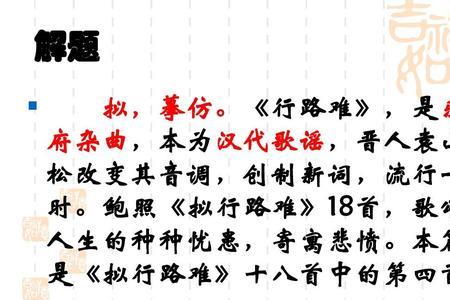 解题
拟，摹仿。《行路难》，是
府杂曲，本为汉代歌谣，晋人袁山
松改变其音调，创制新词，流行一
时。鲍照《拟行路难》18首，歌
人生的种种忧患，寄寓悲愤。本
是《拟行路难》十八首中的第四首